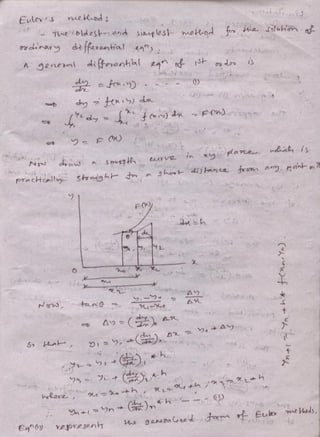 Euler's method:
- The oldest and simplest method for the solution of
ordinary differential eqn,
A general differential eqn of 1st order is
dy/dx = f(x,y) - - - - (1)
⇒ dy = f(x,y) dx
⇒ y = F(x)
Now draw a smooth curve in xy plane which is
practically straight for a short distance from any point on it
y
F(x)
dx = h
θ
x
0
Now, tanθ = (y₁-y₀)/(x₁-x₀) = Δy/Δx
⇒ Δy = (dy/dx)₀ Δx
So that, y₁ = y₀ + (dy/dx)₀ Δx = y₀ + Δy
y₂ = y₁ + (dy/dx)₁ * h
y₃ = y₂ + (dy/dx)₂ * h
where x₁ = x₀ + h, x₂ = x₁ + h, x₃ = x₂ + h
yₙ₊₁ = yₙ + (dy/dx)ₙ * h - - - (2)
Eqn(2) represents the generalised form of Euler methods.
yₙ₊₁ = yₙ + h * f(xₙ, yₙ)